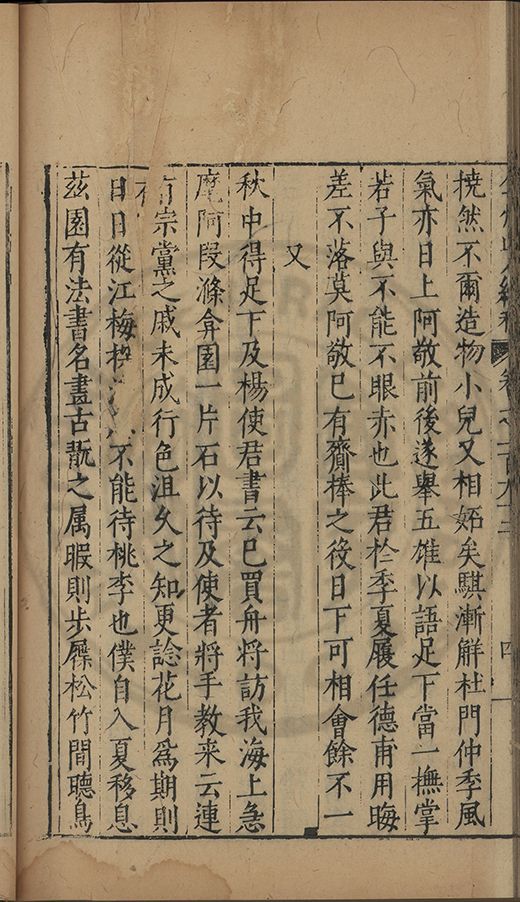 撓然不爾造物小兒又相妬矣騏漸解杜門仲季風
氣亦日上阿敬前後遂舉五雄以語足下當一撫掌
若子與不能不眼赤也此君於季夏履任德甫用晦
差不落莫阿敬已有齎捧之役日下可相會餘不一
又
秋中得足下及楊使君書云已買舟將訪我海上急
麾阿段滌弇園一片石以待及使者將手教来云連
有宗黨之戚未成行色沮久之知更諗花月爲期則
日日從江梅 不能待桃李也僕自入夏移息
茲園有法書名畫古翫之属暇則步屧松竹間聽鳥